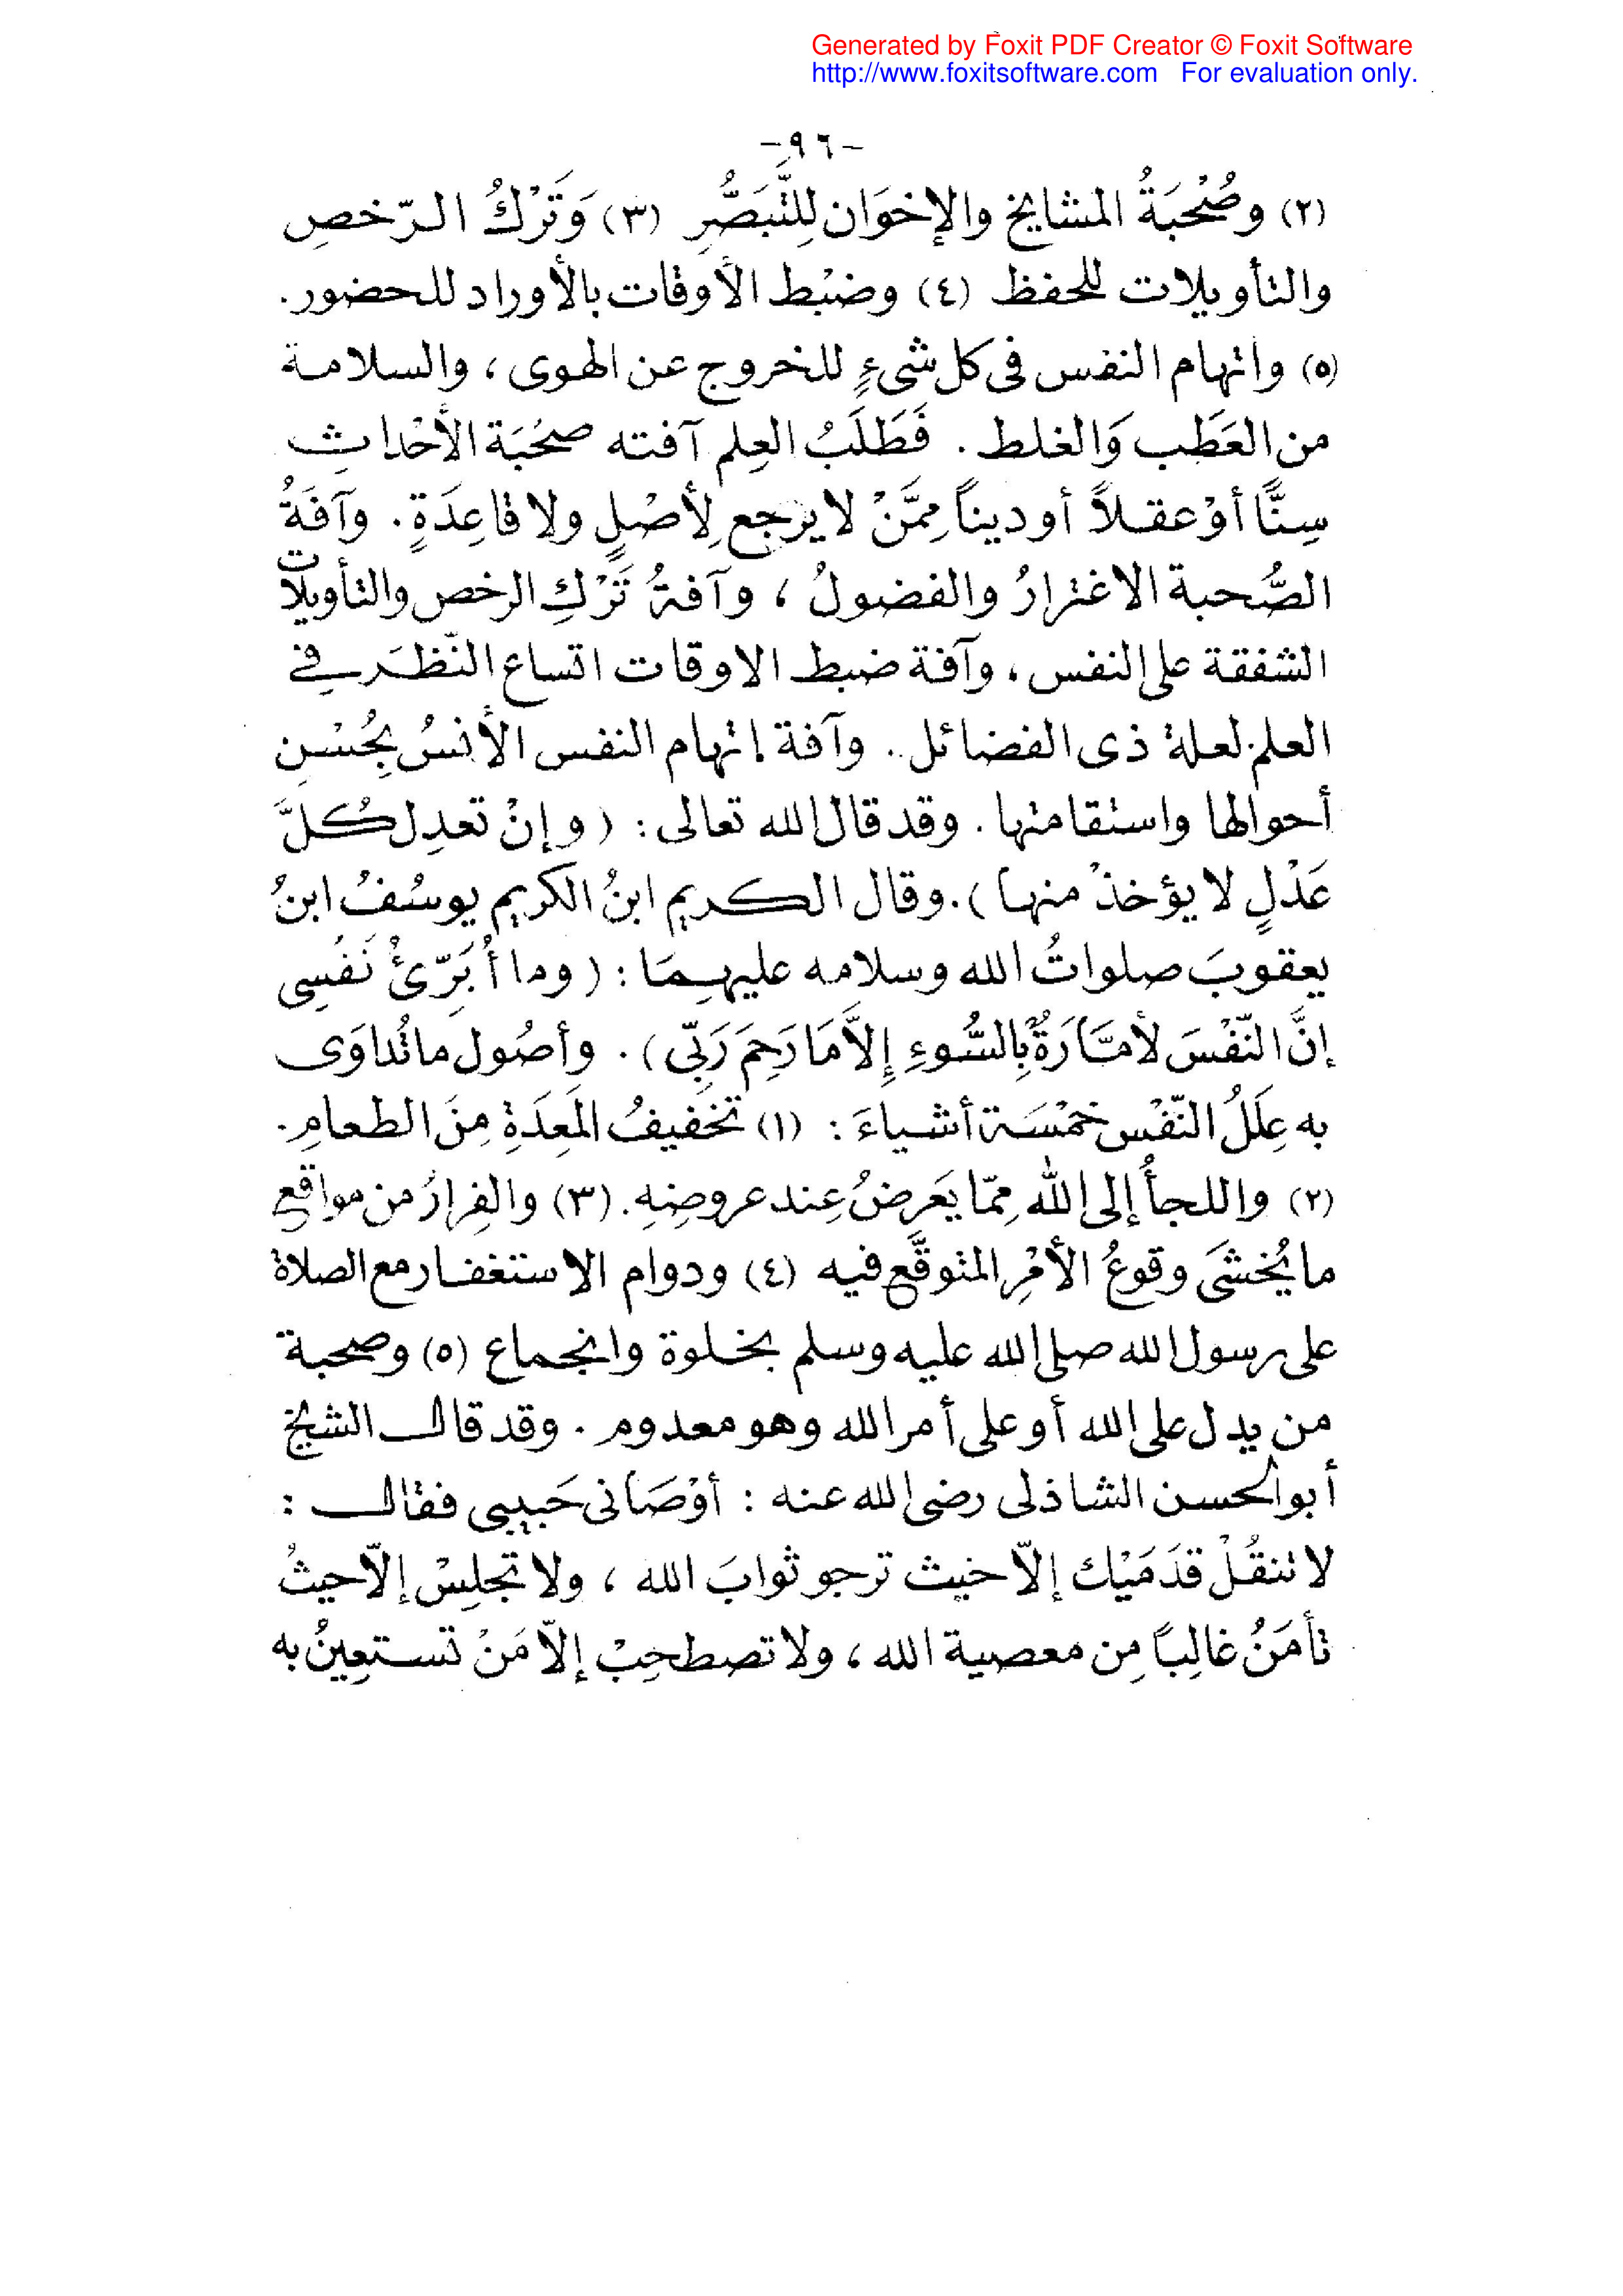 Generated by Foxit PDF Creator © Foxit Software
http://www.foxitsoftware.com For evaluation only.
-٩٦-
(٢) وصُحْبَةُ المشايخ والإخوَان لِلتَّبَصُّرِ (٣) وَتَرْكُ الرّخصِ
والتأويلات للحفظ (٤) وضبْط الأوقات بالأوراد للحضور.
(٥) واتهام النفس فى كل شىءٍ للخروج عن الهوى، والسلامة
من العَطَب وَالغلط. فَطَلَبُ العِلم آفته صحُبَة الأحْداث
سِنًّا أوْ عقلاً أو ديناً مِمَّنْ لا يرجع لِأصْلٍ ولا قاعِدَةٍ. وآفَةُ
الصُّحبة الاغترارُ والفضولُ، وآفةُ تَرْكِ الرخص والتأويلات
الشفقة على النفس، وآفة ضبط الاوقات اتساع النّظَر في
العلم لعلة ذى الفضائل. وآفة اتهام النفس الأنسُ بِحُسْنِ
أحوالها واستقامتها. وقد قال الله تعالى: (وإنْ تعدِل كُلَّ
عَدْلٍ لا يؤخذْ منها). وقال الكريم ابنُ الكريم يوسُفُ ابنُ
يعقوبَ صلواتُ الله وسلامه عليهِمَا: (وما أُبَرّئُ نَفسِى
إنَّ النّفْسَ لأمَّارَةٌ بِالسُّوءِ إِلاَّ مَا رَحِمَ رَبِّى). وأصُول ما تُداوَى
به عِلَلُ النّفْس خمْسَة أشياءَ: (١) تخفيفُ المَعِدَةِ مِنَ الطعامِ.
(٢) واللجأُ إلى الله مِمّا يَعَرِضُ عِند عروضِهِ. (٣) والفِرارُ من مواقع
ما يُخشَى وقوعُ الأمْرِ المتوقَّع فيه (٤) ودوام الاستغفار مع الصلاة
على رسول الله صلى الله عليه وسلم بخلوة وانجماع (٥) وصحبة
من يدل على الله أو على أمر الله وهو معدوم. وقد قال الشيخ
أبو الحسن الشاذلى رضى الله عنه: أوْصَانى حَبيبى فقال:
لا تنقُلْ قدَمَيْك إلاّ حيث ترجو ثوابَ الله، ولا تجلِسْ إلاّ حيثُ
تأمَنُ غالِباً مِن معصية الله، ولا تصطحِبْ إلاّ مَنْ تستعِينُ به